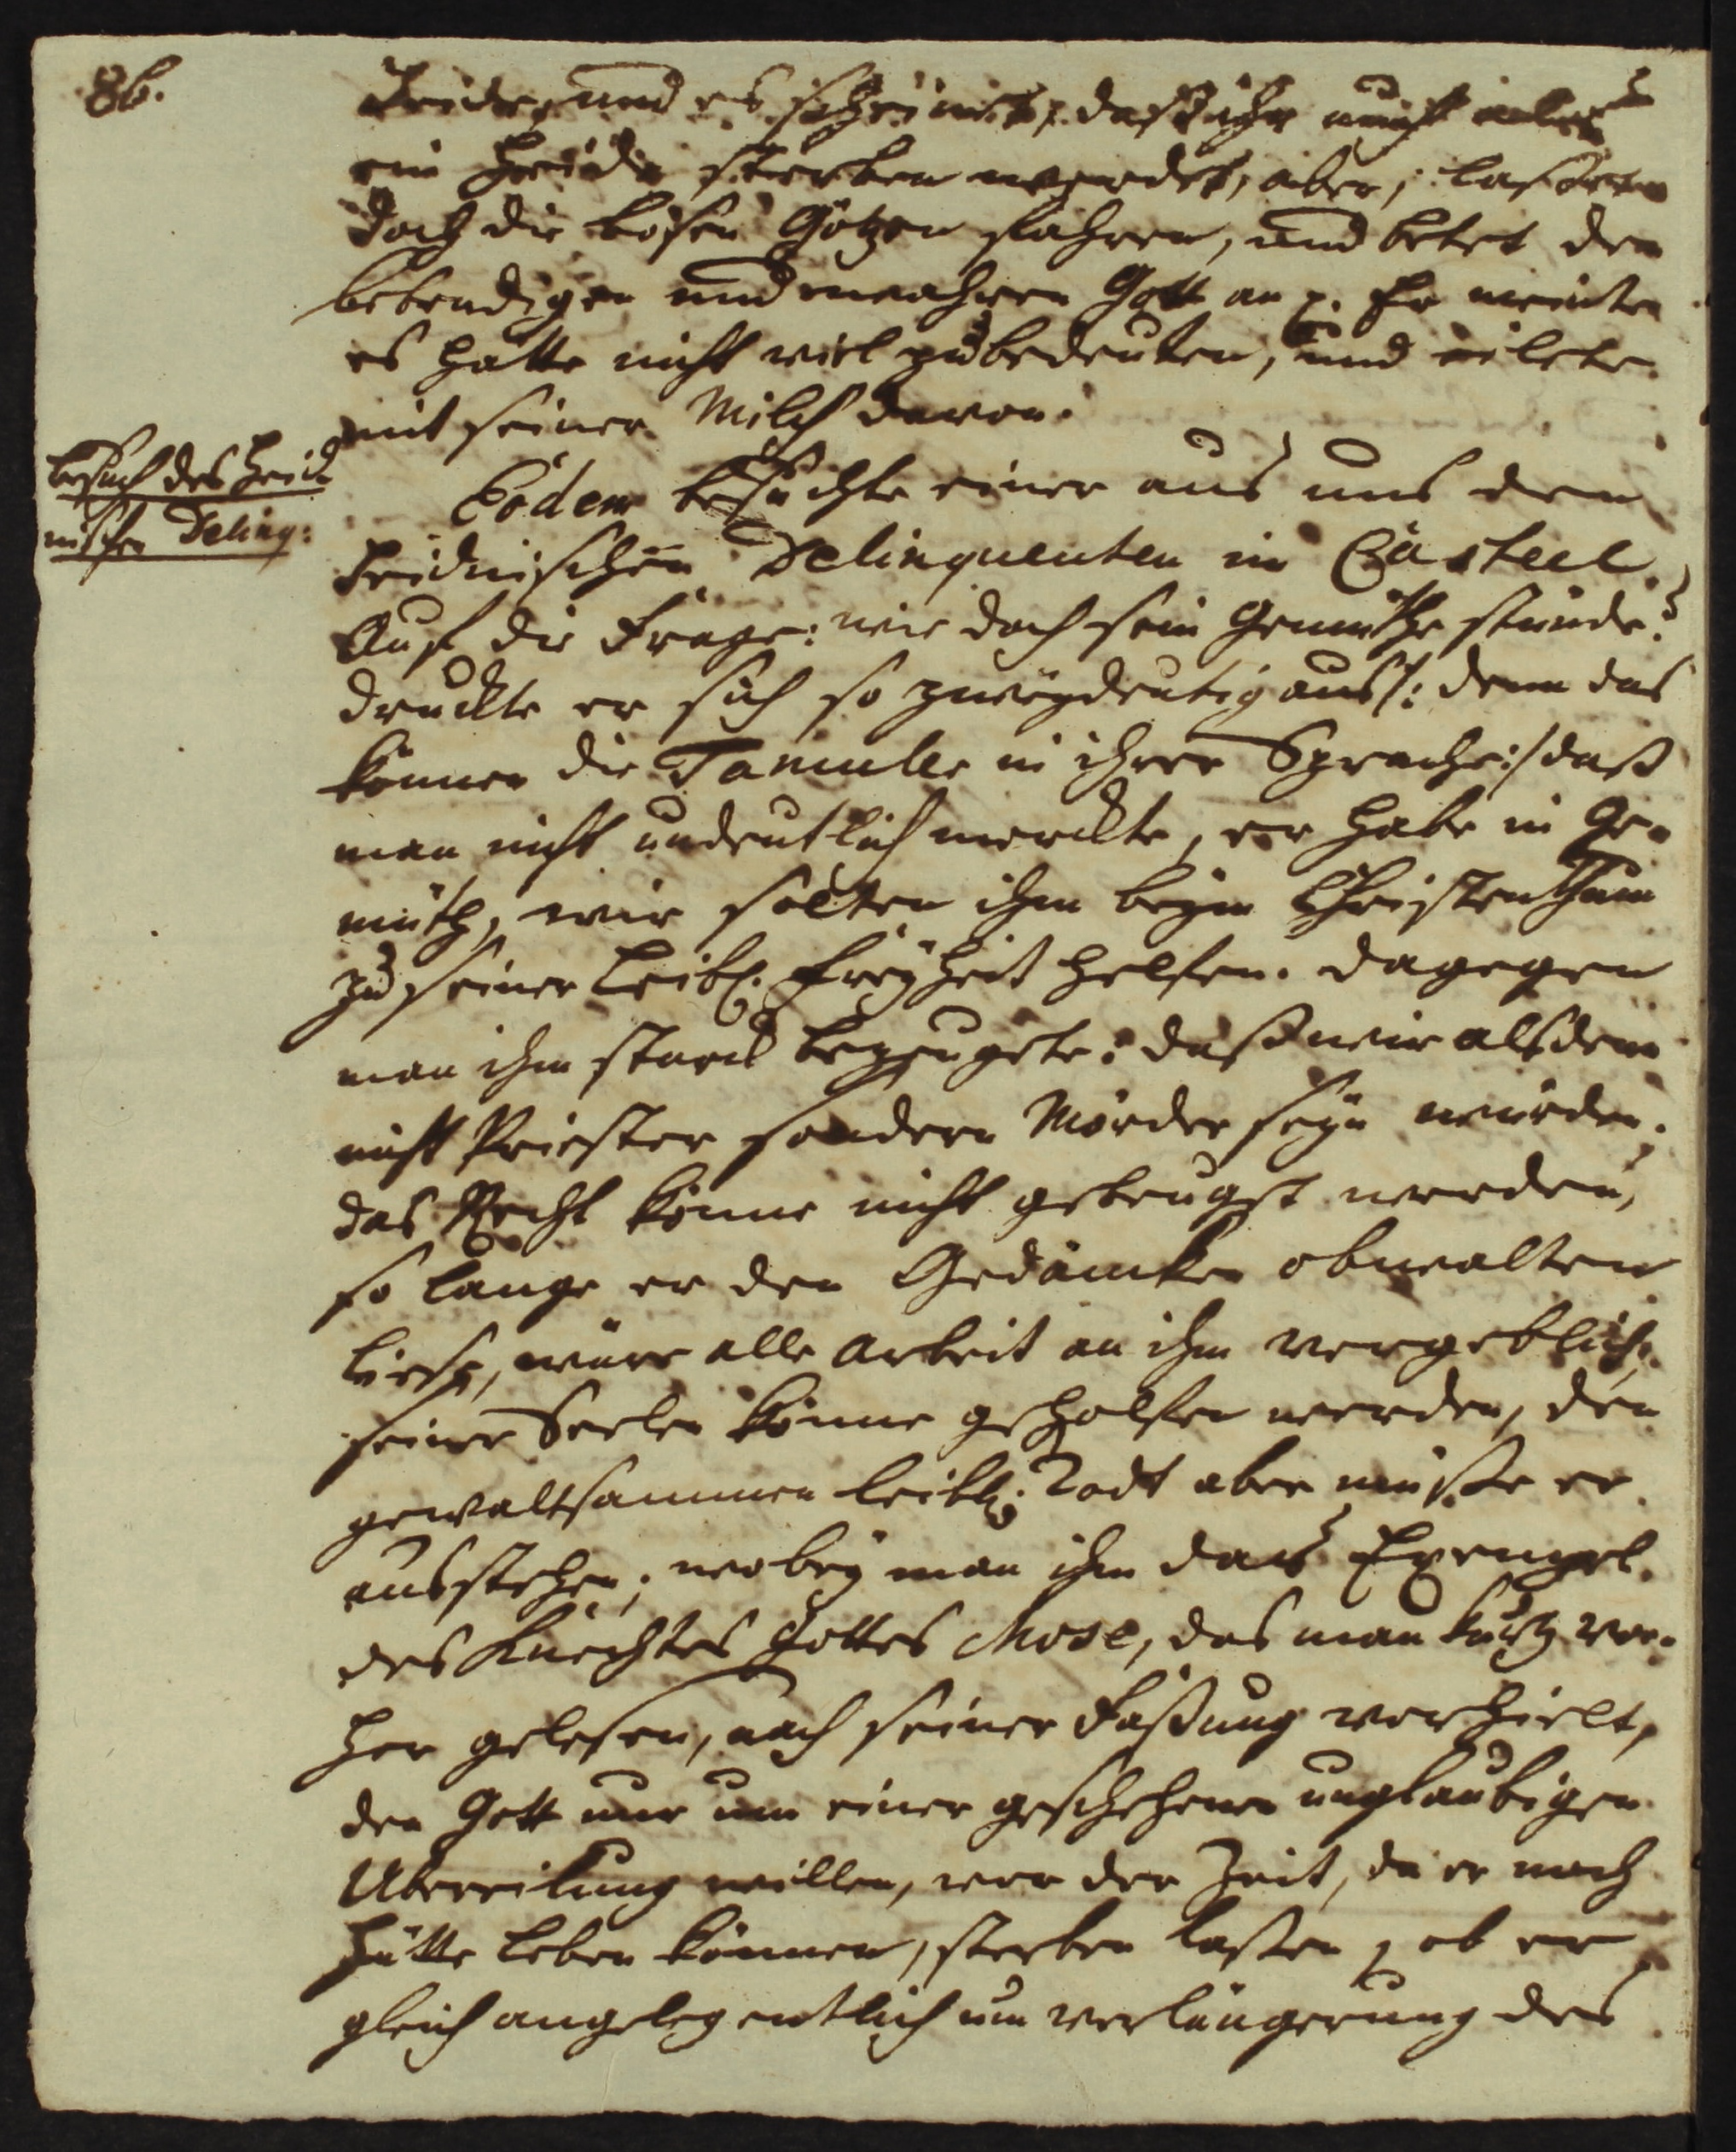 86.
Heide, und es scheinet, daß ihr auch als
ein Heide sterben werdet, aber, laßet
doch die bösen Götzen fahren, und betet den
lebendigen und wahren Gott an p. Er meinte
es hätte nicht viel zubedeuten, und eilete
mit seiner Milch davon.
Besuch des Heid-
nischen Delinq:
Eodem besuchte einer aus uns den
Heidnischen Delinquenten in Casteel.
Auf die Frage: wie doch sein Gemüthe stünde?
druckte er sich so zweydeutig aus /: denn das
können die Tamuler in ihrer Sprache :/ daß
man nicht undeutlich merckte, er habe im Ge-
müth, wir solten ihm beym Christenthum
zu seiner leibl. Freyheit helfen. Dagegen
man ihm starck bezeugete: daß wir alsdenn
nicht Priester sondern Mörder seyn würden;
das Recht könne nicht gebeugt werden,
so lange er den Gedancken obwalten
ließe, wäre alle Arbeit an ihm vergeblich.
seiner Seelen könne geholfen werden, den
gewaltsammen leibl. Todt aber müße er
ausstehen; wobey man ihm das Exempel
des Knechtes Gottes Mose, das man kurtz vor-
her gelesen, nach seiner Faßung vorhielt,
den Gott nur um einer geschehenen unglaubigen
Ubereilung willen, vor der Zeit, da er noch
hätte leben können, sterben laßen, ob er
gleich angelegentlich um verlängerung des